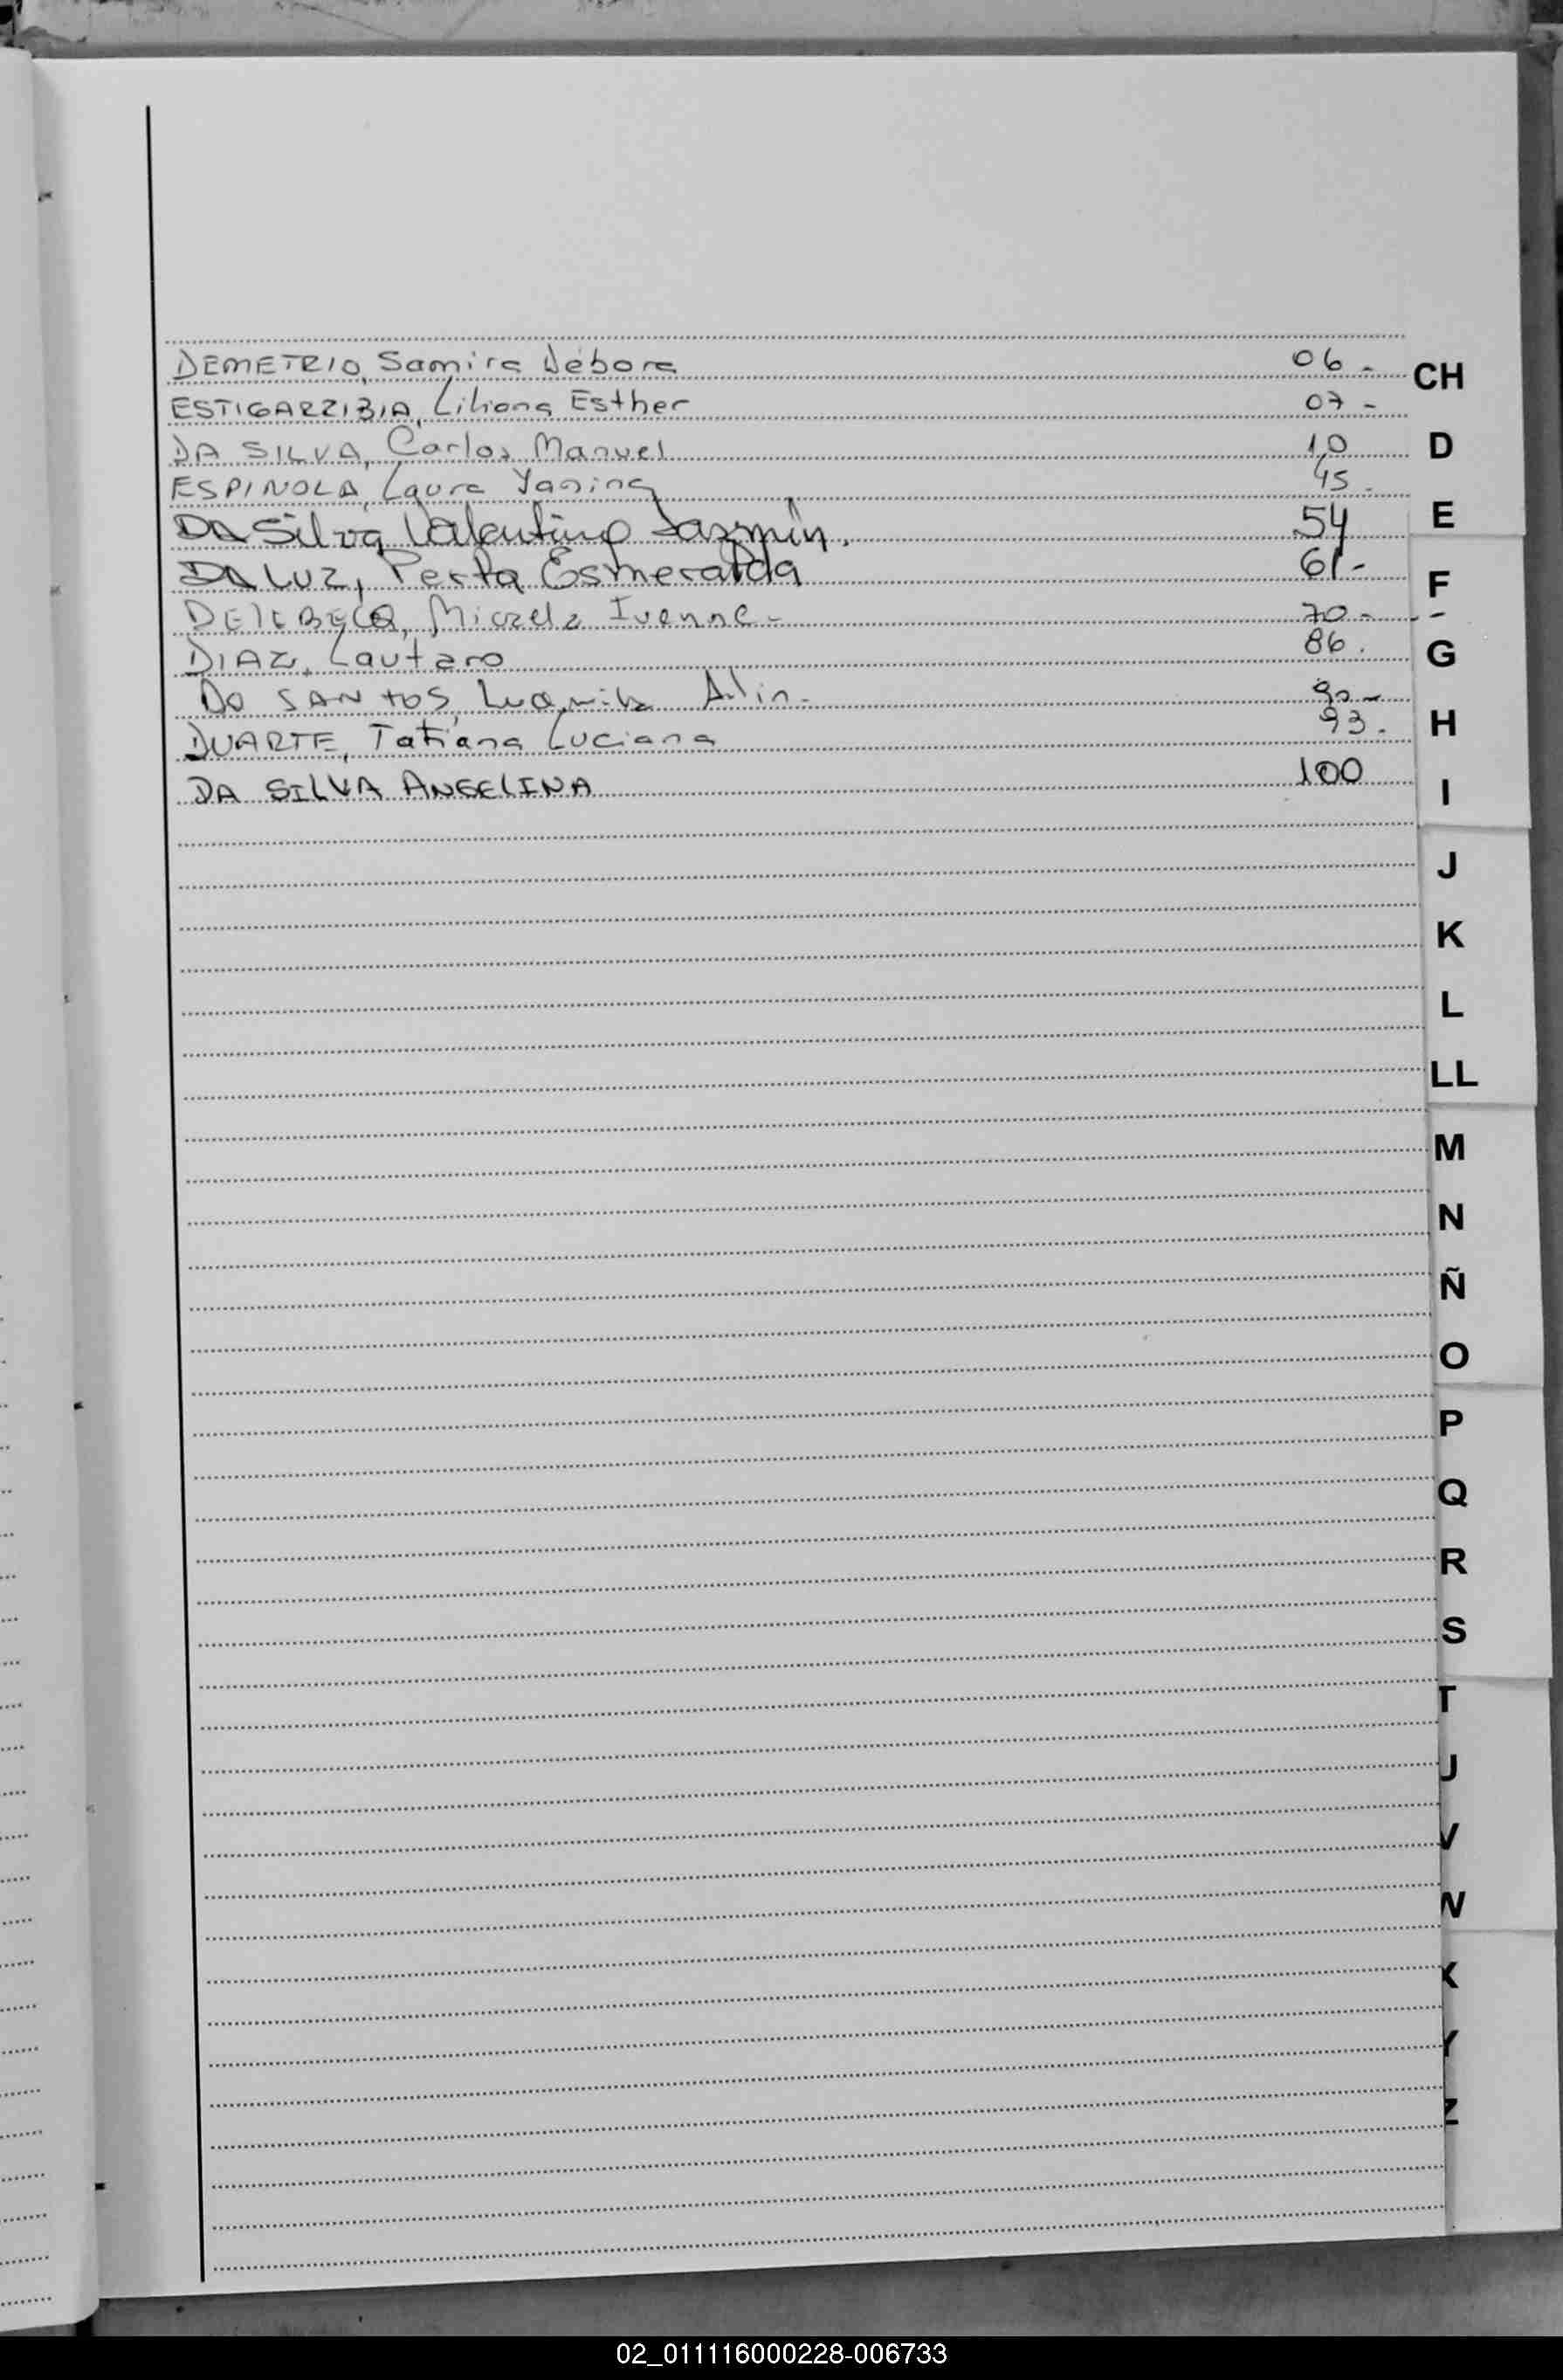 DEMETRIO, Samira Débora 06 -
ESTIGARRIBIA, Liliana Esther 07 -
DA SILVA, Carlos Manuel 10
ESPINOLA, Laura Yanina 45 -
DA Silva Valentino Jazmín. 54
DA LUZ, Perla Esmeralda 61 -
Micaela Ivonne - 70 - -
DIAZ, Lautaro 86 .
DO SANTOS, Ludmila 90 -
DUARTE, Tatiana Luciana 93 .
DA SILVA ANGELINA 100
CH
D
E
F
G
H
I
J
K
L
LL
M
N
Ñ
O
P
Q
R
S
T
U
V
W
X
Y
Z
02_011116000228-006733